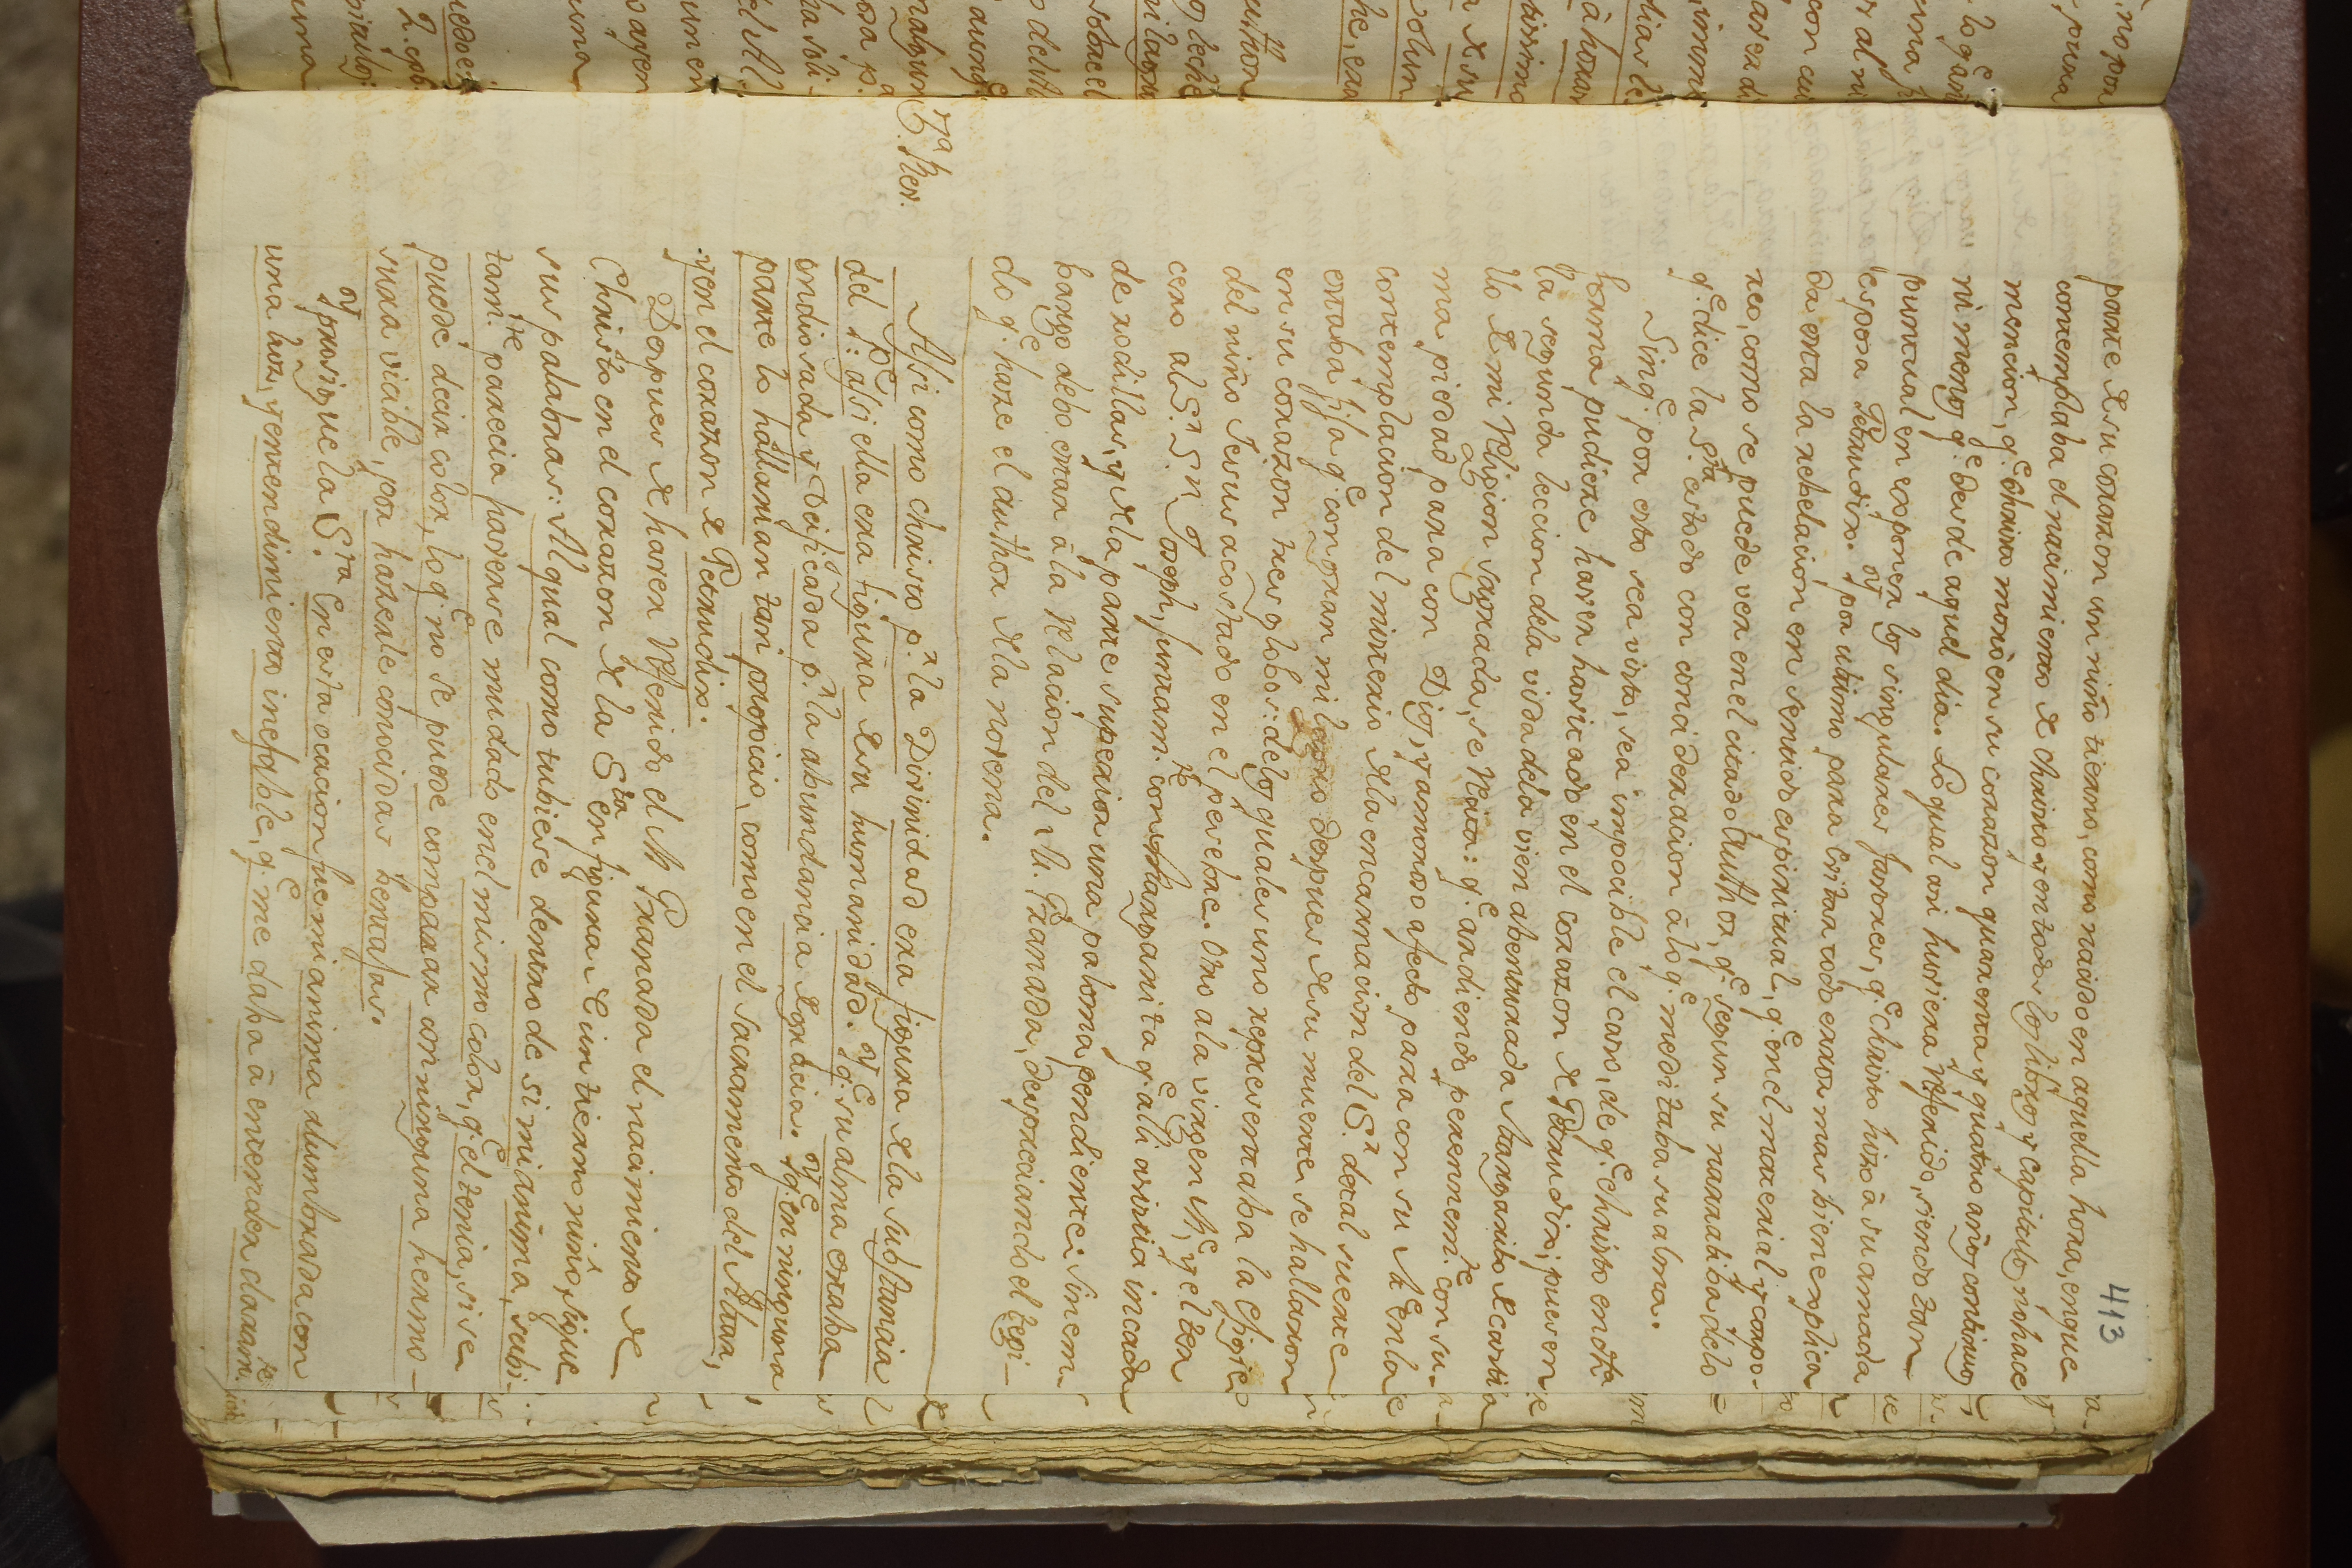 413
parte de su corazon un niño tierno, como nacido en aquella hora, en que
contemplaba el nacimiento de Christo, y en todos los libros y capitulos no hace
mencion, q.e Christo moró en su corazon quarenta y quatro años continuos
ni menos q.e desde aquel dia. Lo qual asi huviera referido, siendo tan
puntual en exponer los singulares favores, q.e Christo hizo à su amada
esposa Getrudis. Y por ultimo para evitar todo error mas bien explica
da esta la rebelacion en sentido espiritual, q.e en el material y corpo-
reo, como se puede ver en el citado Author, q.e segun su narratiba, de lo
q.e dice la S.ta es todo con concideracion à lo q.e meditaba su alma.
Sin q.e por esto sea visto, sea impocible el caso, de q.e Christo en dha
forma pudiese haver havitado en el corazon de Getrudis; pues en
la segunda leccion de la vida de la vien abenturada Margarita de Casti
llo de mi Religion sagrada, se Reza: q.e ardiendo perennem.te con su
ma piedad para con Dios, y amoroso afecto para con su M.e En la
contemplacion del misterio de la encarnacion del S.r de tal suerte
estaba fija q.e con gran milagro despues de su muerte se hallaron
en su corazon tres globos: de los quales uno representaba la efigie
del niño Jesus acostado en el pesebre. Otro a la virgen M.e, y el ter
cero al S.r S.n Joseph, juntam.te con Margarita q.e alli asistia incada
de rodillas, y de la parte superior una paloma pendiente: sin em
bargo debo estar à la Relacion del M. Granada, despreciando el legi-
do q.e haze el author de la novena.
7a
C. Rev.
Assi como christo p.r la Divinidad era figura de la substancia
del P.e: assi ella era figura de su humanidad. Y q.e su alma estaba
endiosada y Deificada p.r la abundancia de gracia. Y q.e en ninguna
parte lo hallarian tan propicio, como en el sacramento del Altar,
y en el corazon de Getrudis.
Despues de haver Referido el M Granada el nacimiento de
Christo en el corazon de la S.ta en figura de un tierno niño, sigue
sus palabras: Al qual como tubiese dentro de si mi anima, subi-
tam.te parecia haverse mudado en el mismo color, q.e el tenia, si se
puede decir color, lo q.e no se puede comparar con ninguna hermo-
sura vicible, por hazerle conocidas bentajas.
Y prosigue la S.ta En esta ocacion fue mi anima alumbrada con
una luz, y entendimiento inefable, q.e me daba à entender claram.te